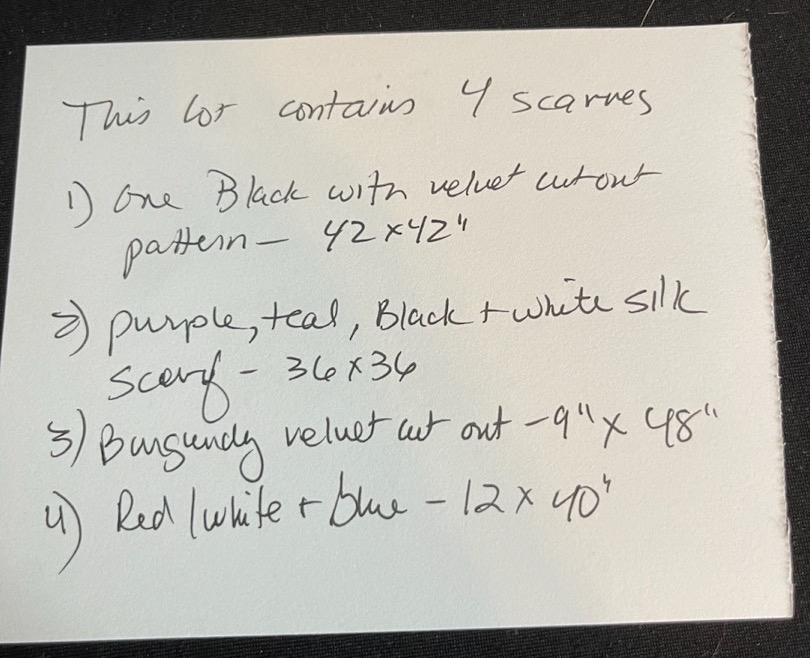 This lot contains 4 scarves
1) One Black with velvet cut out
pattern — 42 x 42"
2) purple, teal, Black + white silk
scarf - 36 x 36
3) Burgundy velvet cut out - 9" x 48"
4) Red / white + blue - 12 x 40"